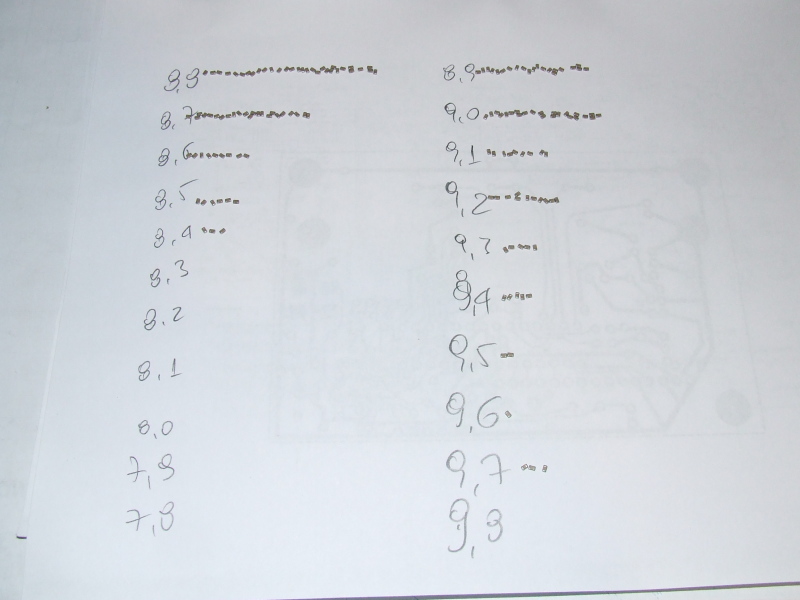 8,8
8,7
8,6
8,5
8,4
8,3
8,2
8,1
8,0
7,9
7,8
8,9
9,0
9,1
9,2
9,3
9,4
9,5
9,6
9,7
9,8